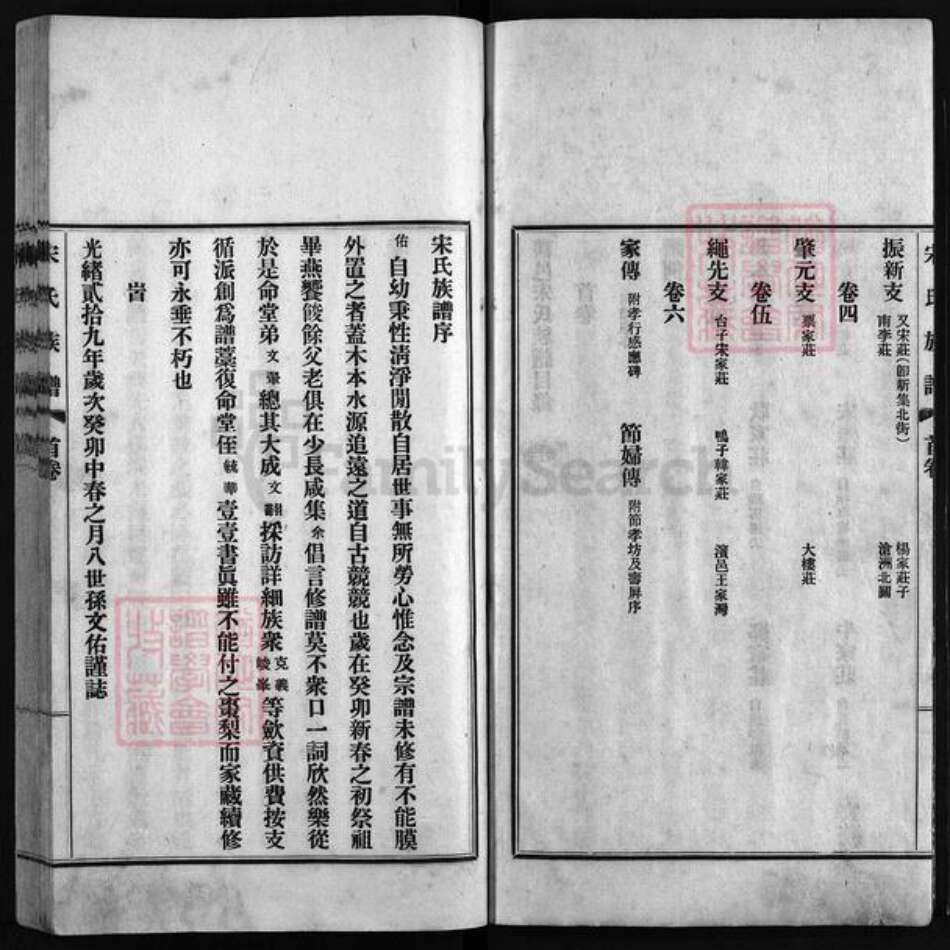 振新支 又宋莊(卽新集北街) 楊家莊子
南李莊 滄洲北關
卷四
肇元支 票家莊 大樓莊
卷伍
繩先支 台子宋家莊 鴨子韓家莊 濱邑王家灣
卷六
家傳 附孝行感應碑 節婦傳 附節孝坊及壽屏序
宋氏族譜 首卷
宋氏族譜序
佑自幼秉性淸淨閒散自居世事無所勞心惟念及宗譜未修有不能膜
外置之者蓋木本水源追遠之道自古兢兢也歲在癸卯新春之初祭祖
畢燕饗餕餘父老俱在少長咸集余倡言修譜莫不衆口一詞欣然樂從
於是命堂弟文翬總其大成文採訪詳細族衆克義峻峯等斂資供費按支
循派創爲譜藁復命堂侄毓華壹壹書眞雖不能付之棗梨而家藏續修
亦可永垂不朽也
旹
光緒貳拾九年歲次癸卯中春之月八世孫文佑謹誌
宋氏族譜 首卷
FamilySearch